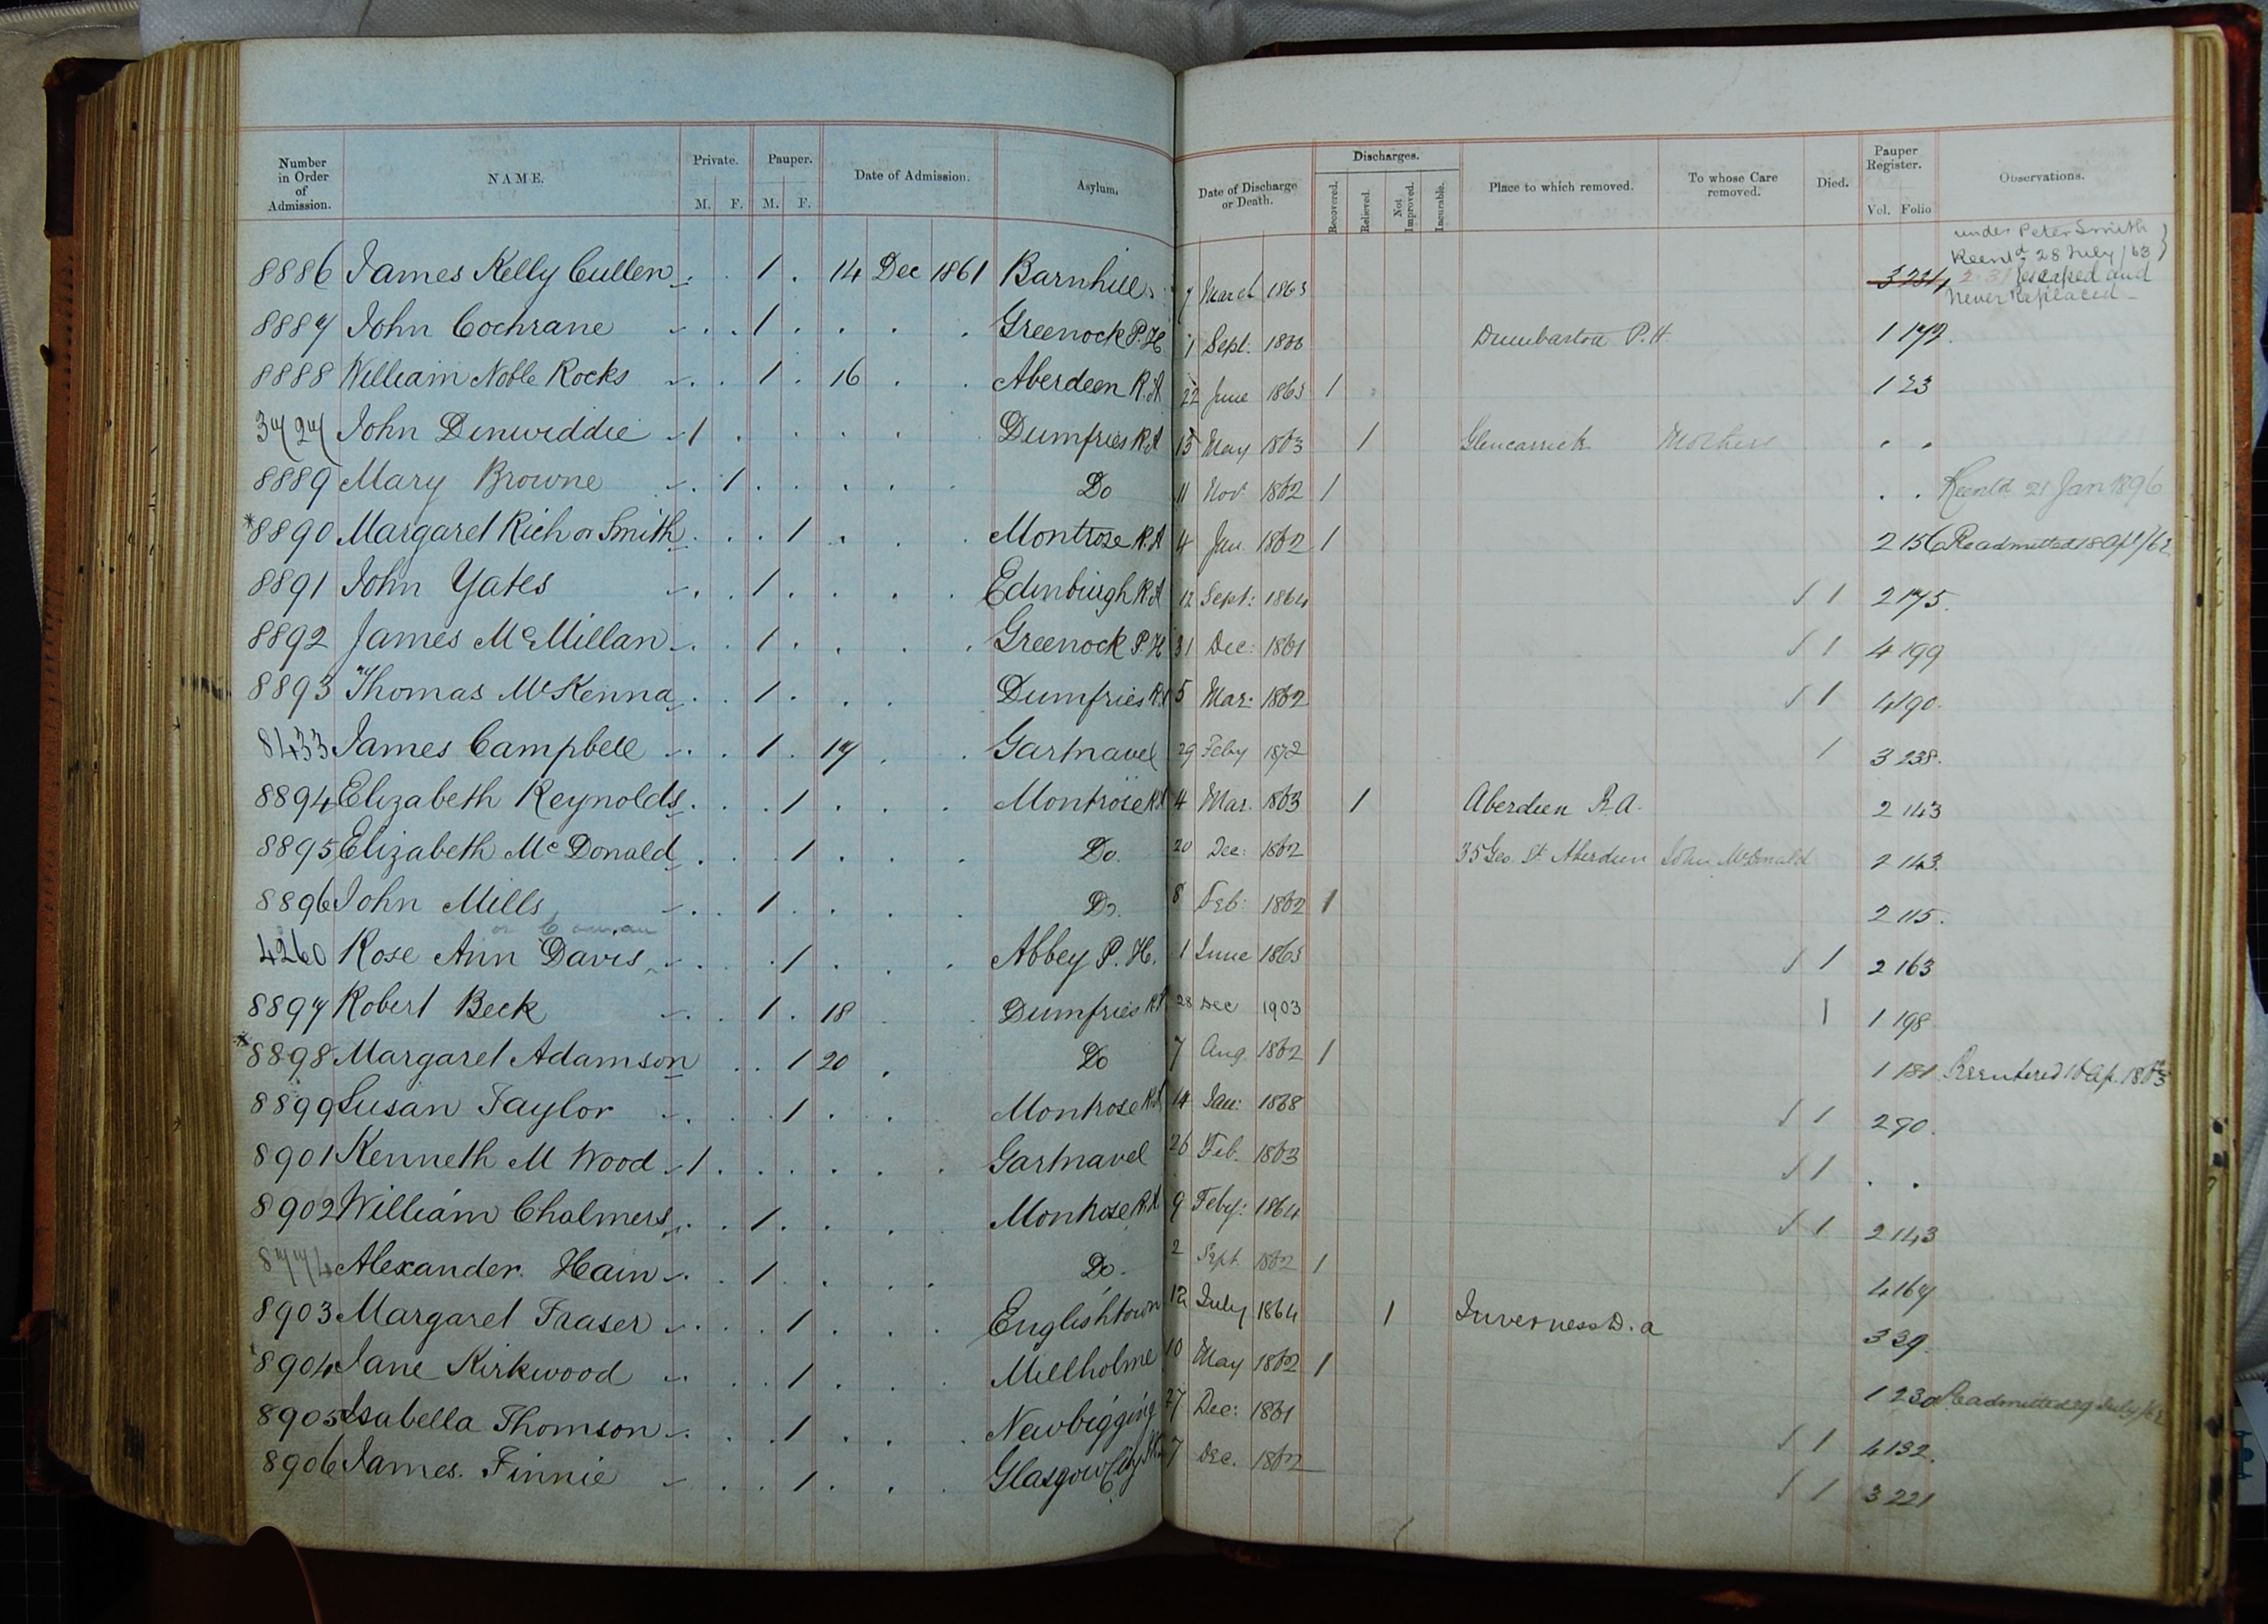 Number in Order of Admission. NAME. Private. M. F. Pauper. M. F. Date of Admission. Asylum. Date of Discharge or Death. Discharges. Recovered. Relieved. Not Improved. Incurable. Place to which removed. To whose Care removed. Died. Pauper Register. Vol. Folio Observations.
under Peter Smith
Reent'd 28 July /63
8886 James Kelly Cullen 1 14 Dec 1861 Barnhill 7 March 1863 escaped and
never Replaced
8887 John Cochrane 1 Greenock P.H. 1 Sept: Dumbarton P.H. 1 172
8888 William Noble Rocks 1 16 Aberdeen R.A 22 June 1863 1 1 23
3727 John Dinwiddie 1 Dumfries R.A 15 May 1863 1 Glencarrick Mother
8889 Mary Browne 1 Do 11 Nov 1862 1 Reent'd 21 Jan 1896
*8890 Margaret Rich or Smith 1 Montrose R.A 4 Jan. 1862 1 2 156 Readmitted 18 Apl/62
8891 John Yates 1 Edinburgh R.A 12 Sept: 1864 1 2 175.
8892 James McMillan 1 Greenock P.H 31 Dec: 1861 1 4 199
8893 Thomas McKenna 1 Dumfries R.A 5 Mar: 1862 1 4 190.
8433 James Campbell 1 17 Gartnavel 29 Feby 1872 1 3 238.
8894 Elizabeth Reynolds 1 Montrose R.A 4 Mar. 1863 1 Aberdeen R.A. 2 143
8895 Elizabeth McDonald 1 Do. 20 Dec: 1862 35 Geo. St Aberdeen John McDonald 2 143.
8896 John Mills 1 Do. 8 Feb: 1862 1 2 115.
4260 Rose Ann Davis 1 Abbey P.H. 1 June 1863 1 2 163
8897 Robert Beck 1 18 Dumfries R.A 28 Dec 1903 1 1 198
*8898 Margaret Adamson 1 20 Do 7 Aug. 1862 1 1 181 Reentered 16 Ap. 1863
8899 Susan Taylor 1 Montrose R.A 14 Jan: 1868 1 2 90.
8901 Kenneth M Wood 1 Gartnavel 26 Feb. 1863 1
8902 William Chalmers 1 Montrose R.A 9 Feby: 1864 1 2 143
8774 Alexander Hain 1 Do. 2 Sept 1862 1 4 167
8903 Margaret Fraser 1 Englishtown 12 July 1864 1 Inverness D.a 3 39.
8904 Jane Kirkwood 1 Millholme 10 May 1862 1 1 230 Readmitted 29 July/62
8905 Isabella Thomson 1 Newbigging 27 Dec: 1861 1 4 132.
8906 James Finnie 1 Glasgow City 7 Dec. 1862 1 3 221